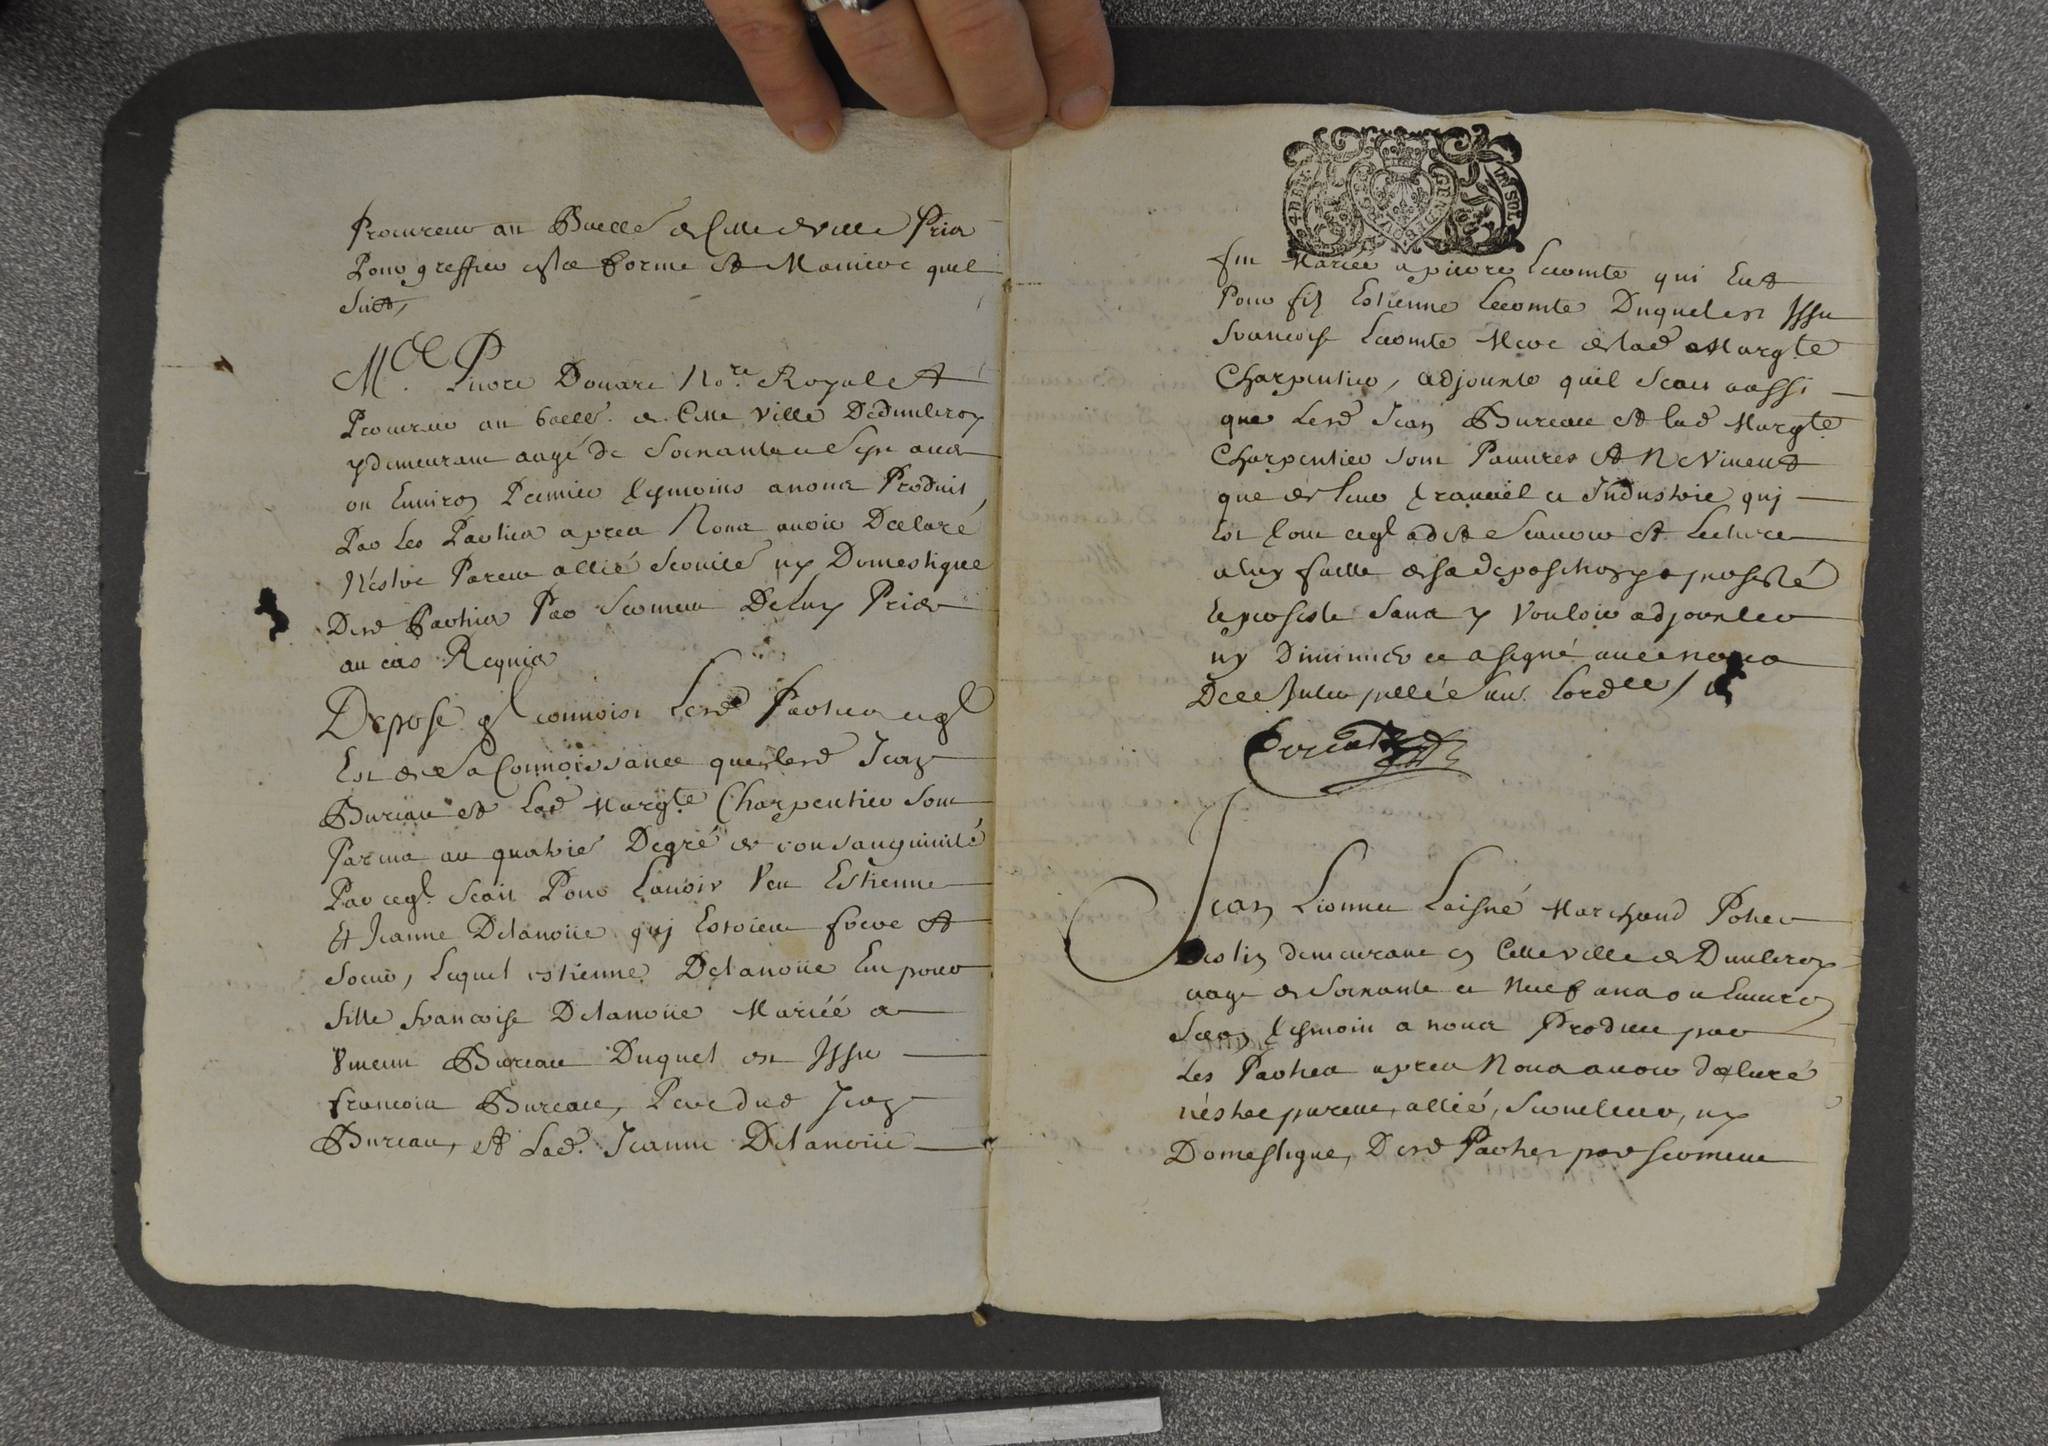 Procureur au Baille de Cette ville Pris
Pour greffier est la forme et Maniere quil
suit,
Me. Pierre Douare No.re Royal et
Procureur au baill. de Cette ville Dedunleroy
y demeurant aagé de Soixante Sept ans
ou Environ Premier tesmoins a nous Produit
Par Les Parties apres Nous avoir Declaré
N'éstre Parent allié ny Domestique
Desd Parties Par Serment De luy Pris
au cas Requis
Depose ql connoist Lesd Parties et ql
Est de sa Connoissance que led Jean
Bureau et lad Margte. Charpentier sont
Parens au quatrie Degré de consanguinité
Par ce ql. Scait Pour Lavoir Veu Estienne
Et Jeanne Delanoüe quj Estoient frere et
soeur, Lequel estienne Delanoüe Eu pour
fille francoise Delanoüe Mariéé a
Vincent Bureau Duquel est Issu
francois Bureau, Pere dud Jean
Bureau, et Lad. Jeanne Delanoüe
fut Mariée a pierre Lecomte qui Eut
Pour fils Estienne Lecomte Duquel est Issu
francoise Lecomte Mere de lad Margte
Charpentier, adjouste quil scait aussi
que Lesd Jean Bureau et lad Margte.
Charpentier sont Pauvres et Ne Vivent
que de leur travail et Industrie quj
Est tout ce ql a dit Scavoir et Lecture
a luy faitte de sa deposition y a persisté
et persiste sans y Vouloir adjouster
ny Diminuer et a signé avec nous
Jean Lionnet Laisné Marchand Potier
destin demeurant en Cette ville de Dunleroy
aagé de Soixante et Neuf ans ou Environ
Secon tesmoin a nous Produit par
Les Parties apres Nous avoir declaré
n'éstre parent, allié, serviteur, ny
Domestique, Desd Parties par serment